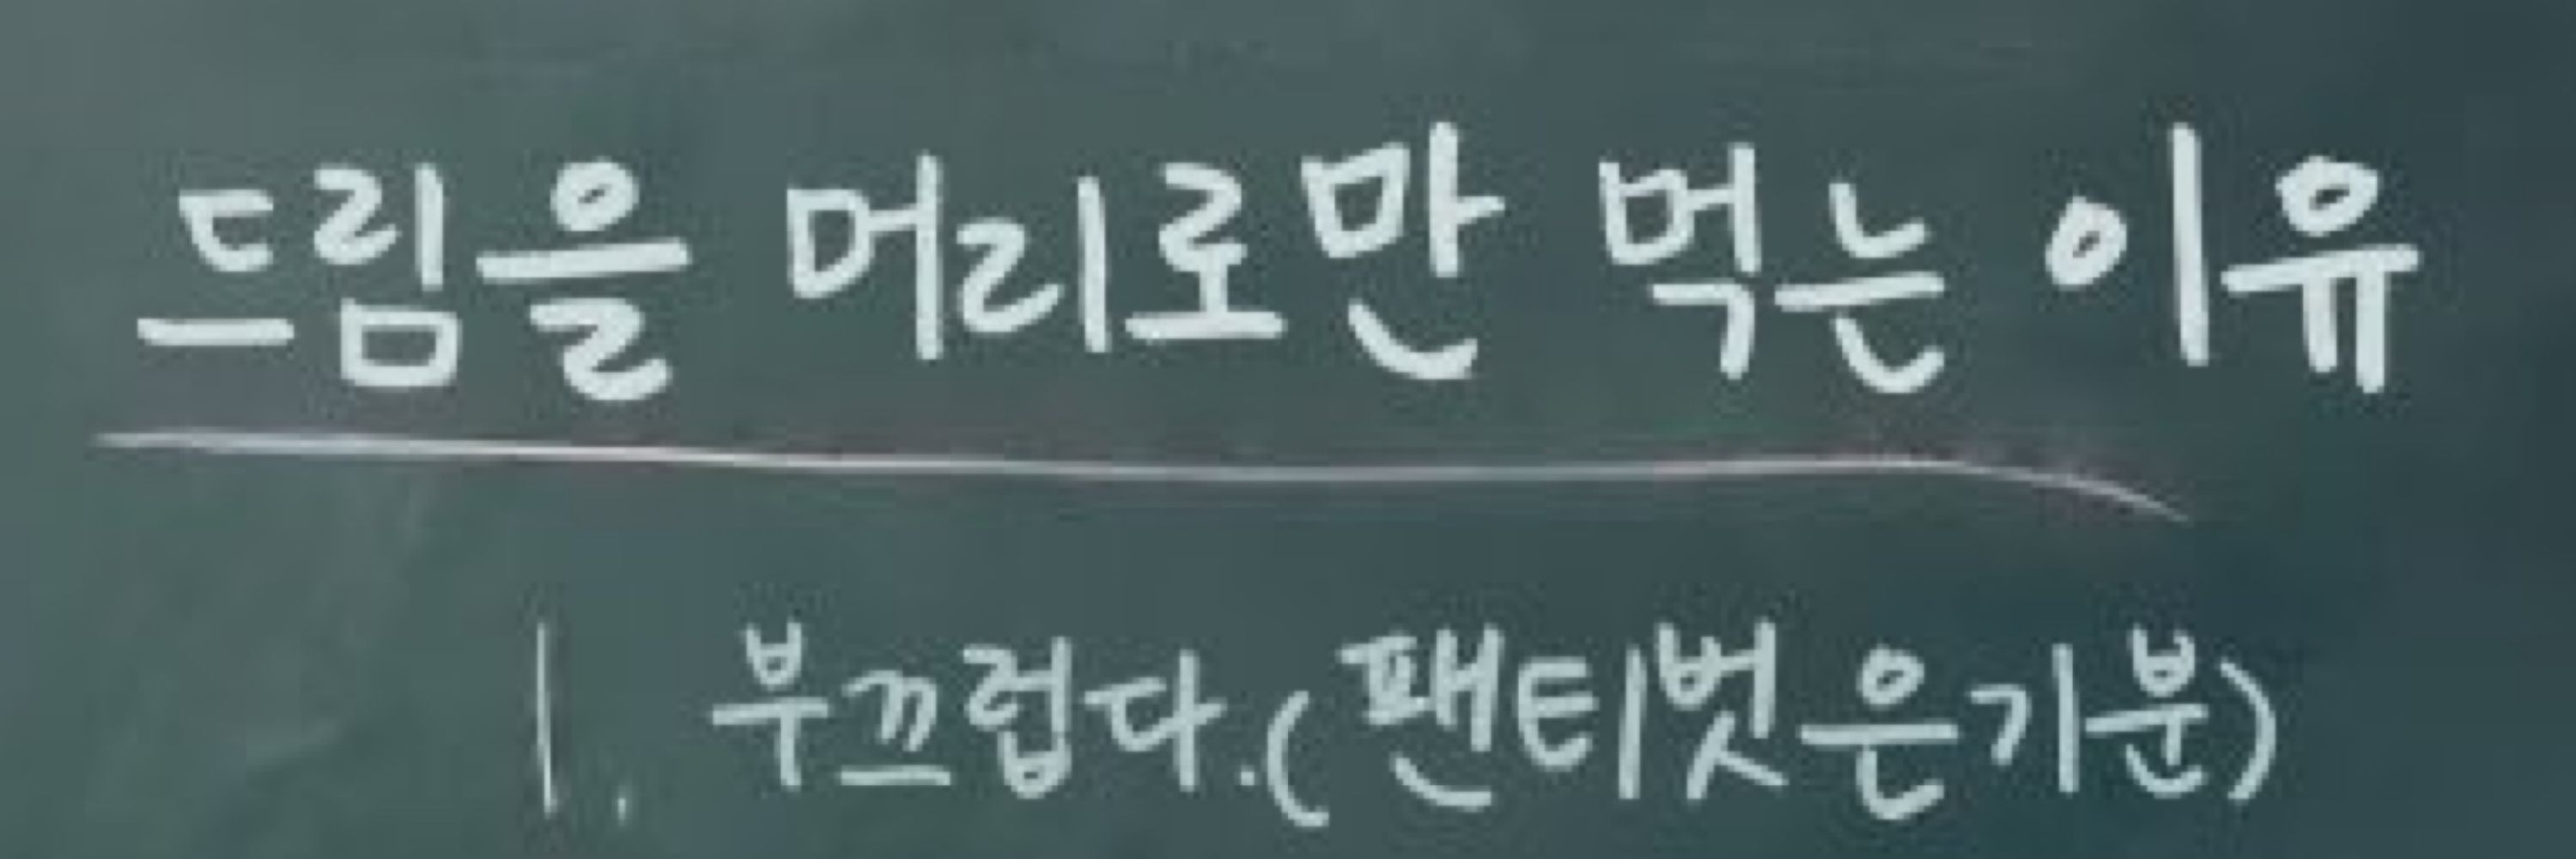 드림을 머리로만 먹는 이유
1. 부끄럽다.(팬티벗은기분)